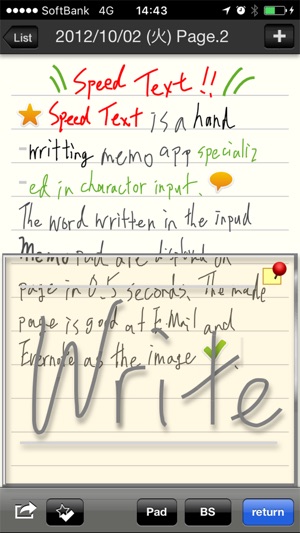 SoftBank 4G 14:43
List 2012/10/02 (火) Page.2 +
Speed Text !!
Speed Text is a hand
writting memo app specializ
ed in charactor input.
The word written in the input
Memo Pad are display on
page in 0.5 seconds. The made
page is good at E-Mail and
Evernote as the image.
Write
Pad BS return